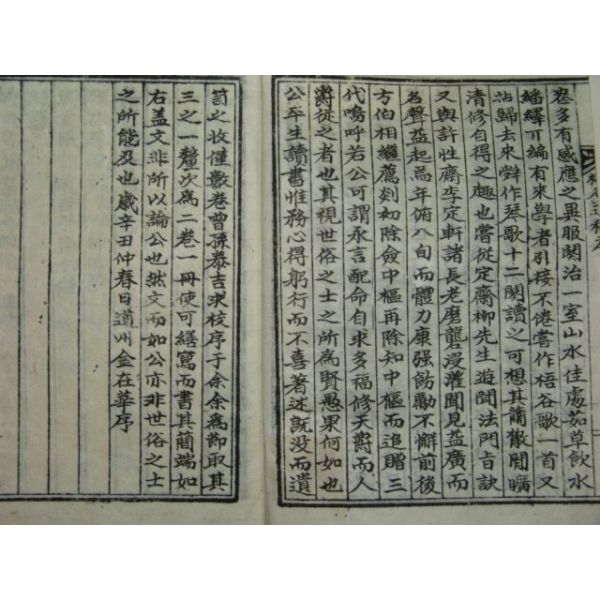 忞多有感應之異服闋治一室山水佳處茹草飮水
繙繹可編有來學者引接不倦嘗作梧谷歌一首又
站歸去來辭作琴歌十二闋讀之可想其蕭散閒曠
清修自得之趣也嘗從定齋柳先生遊聞法門旨訣
又與許性齋李定軒諸長老磨礲浸灌聞見益廣而
名聲益起忌年俯八旬而體力康强飭勵不懈前後
方伯相繼薦剡初除僉中樞再除知中樞而追贈三
代嗚呼若公可謂永言配命自求多福修天爵而人
爵從之者也其視世俗之士之所爲賢愚果何如也
公平生讀書惟務心得躬行而不喜著述旣没而遺
笥之收僅數卷曾孫泰吉求校序于余余爲節取其
三之一釐次爲二卷一冊使可繕寫而書其簡端如
右盖文非所以論公也然文而如公亦非世俗之士
之所能及也歲辛丑仲春日道州金在華序